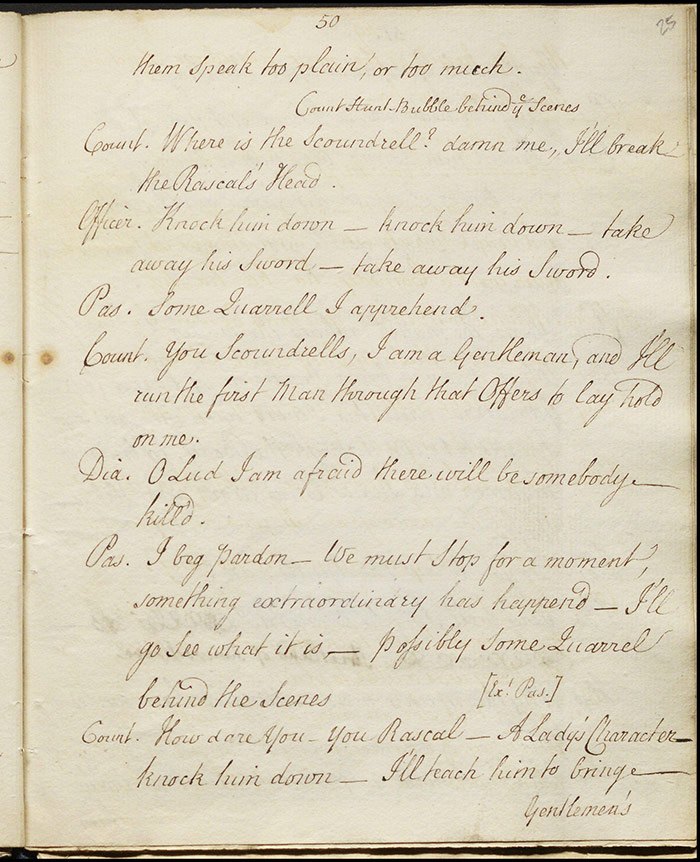 50
25
them speak too plain, or too much.
Count Hunt-Bubble behind ye Scenes
Count. Where is the Scoundrell? damn me, I'll break
the Rascal's Head.
Officer. Knock him down — knock him down — take
away his Sword — take away his Sword.
Pas. Some Quarrell I apprehend.
Count. You Scoundrells, I am a Gentleman, and I'll
run the first Man through that Offers to lay hold
on me.
Dia. O Lud I am afraid there will be somebody
kill'd.
Pas. I beg pardon — We must Stop for a moment,
something extraordinary has happend — I'll
go see what it is — possibly some Quarrel
behind the Scenes
[Ext. Pas.]
Count. How dare You — You Rascal — A Lady's Character —
knock him down — I'll teach him to bring
Gentlemen's